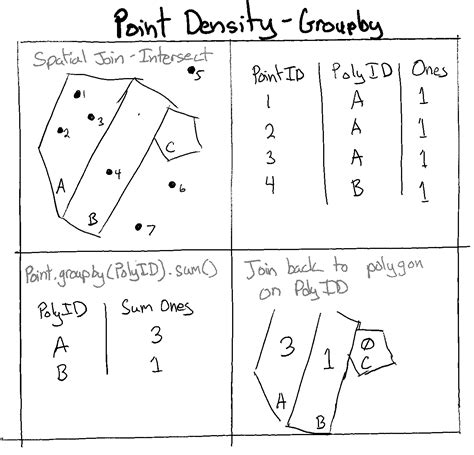 Point Density - Groupby
Spatial Join - Intersect
5
1
2
3
4
6
7
A
B
C
PointID PolyID Ones
1 A 1
2 A 1
3 A 1
4 B 1
Point.groupby(PolyID).sum()
PolyID Sum Ones
A 3
B 1
Join back to polygon
on PolyID
3
1
0
C
A
B